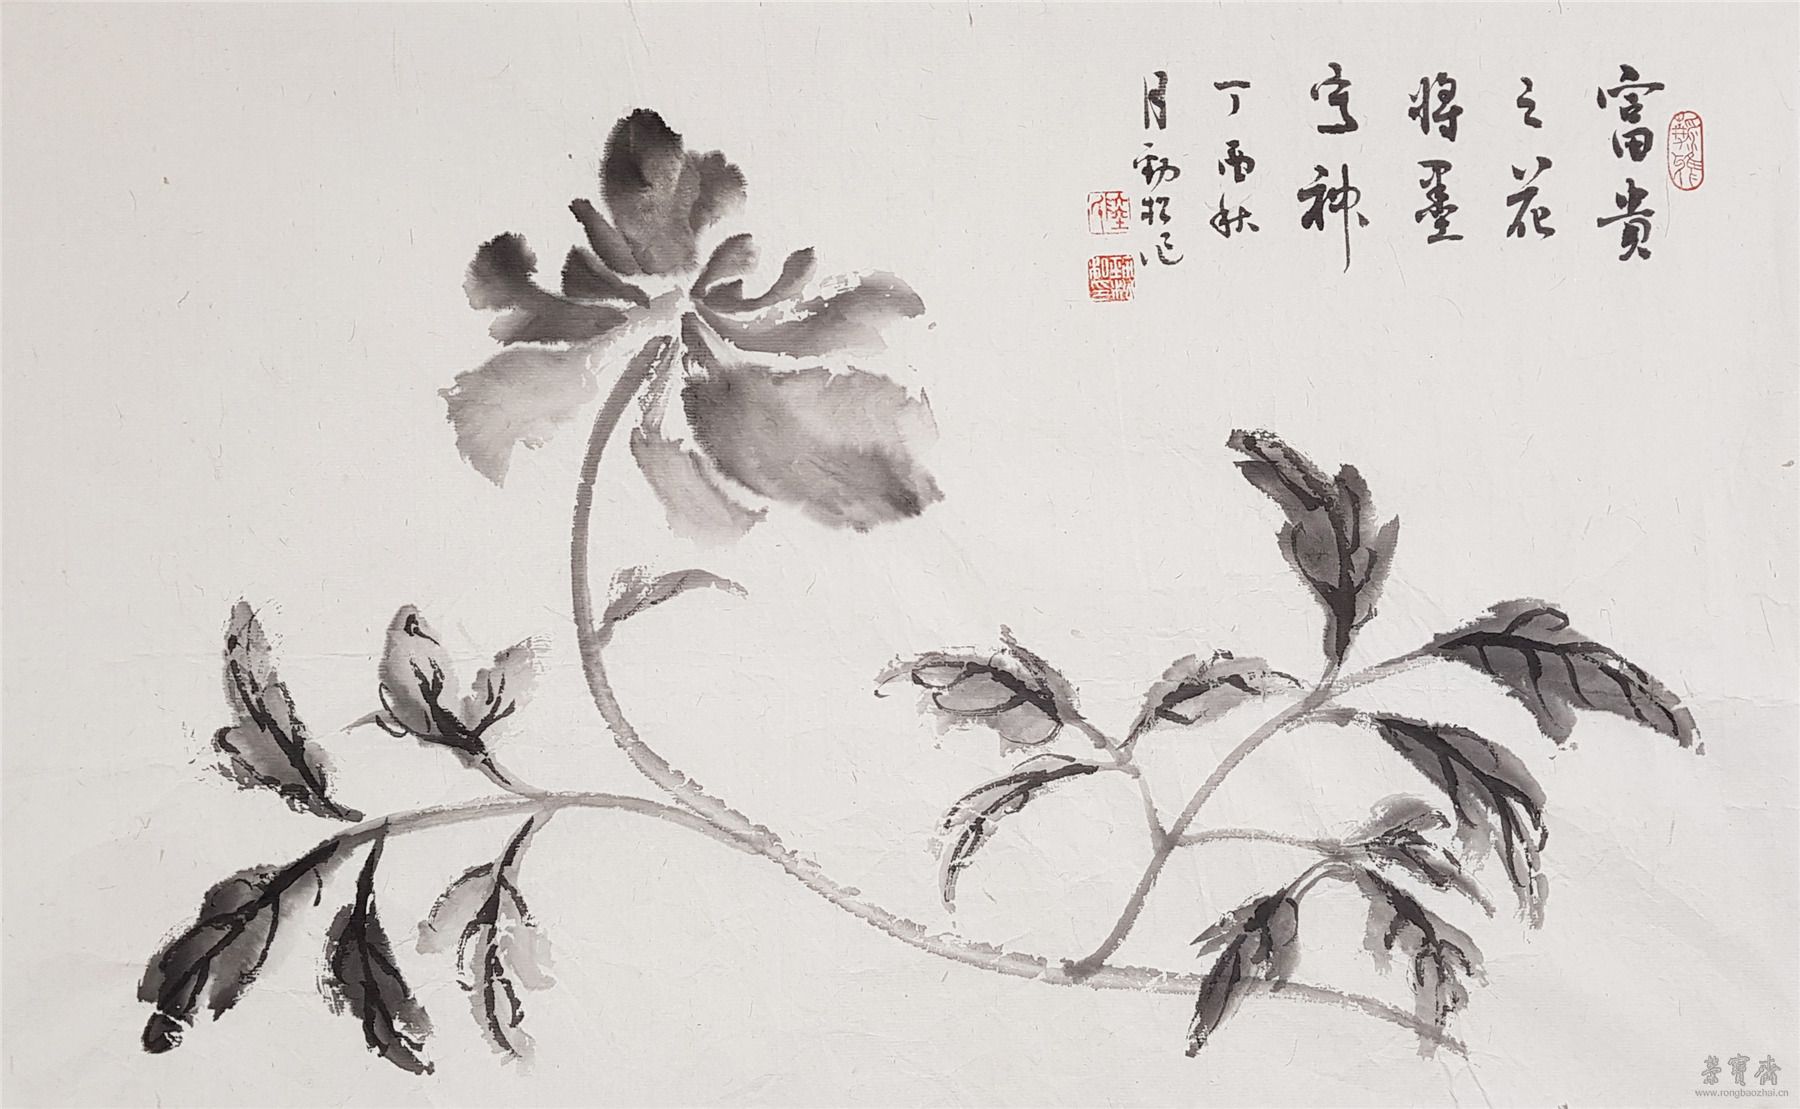 富貴
之花
將墨
寫神
丁酉秋
月勁松作
榮寶齋
www.rongbaozhai.cn